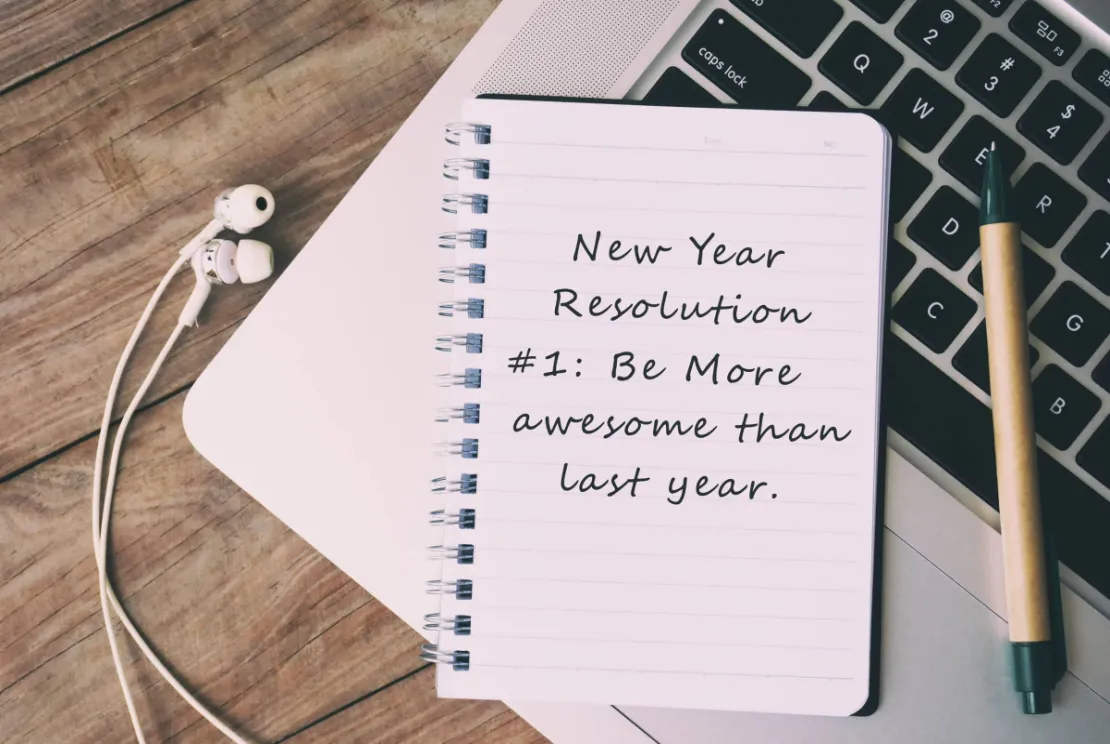 New Year
Resolution
#1: Be More
awesome than
last year.
caps lock
@
2
#
3
$
4
F2
F3
Q
W
E
R
D
C
G
B
NO